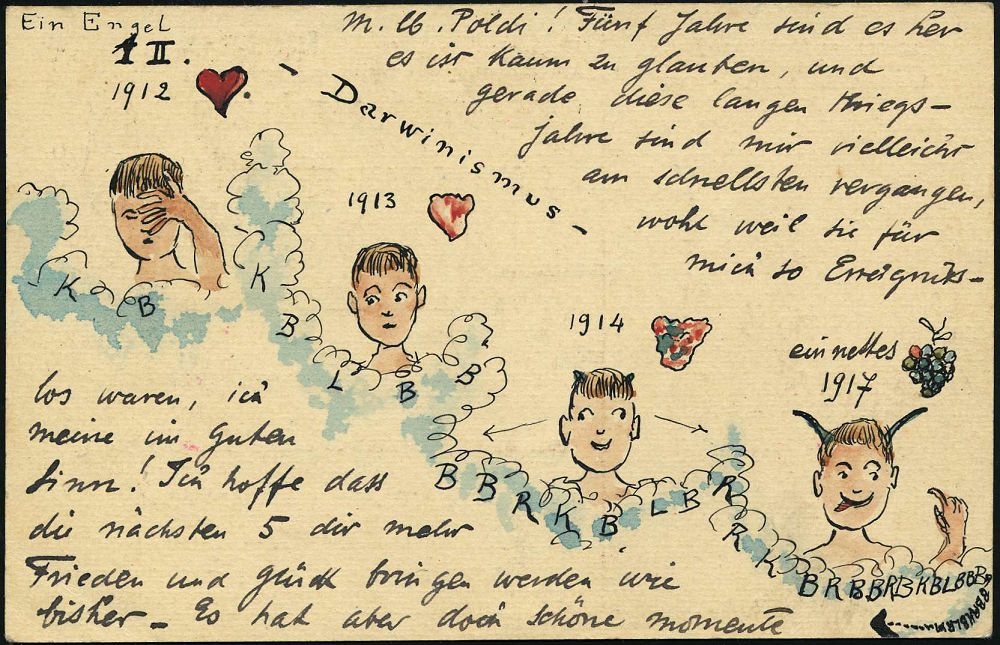 Ein Engel
1 II.
1912
- Darwinismus -
M. lb. Poldi! Fünf Jahre sind es her
es ist kaum zu glauben, und
gerade diese langen Kriegs-
jahre sind mir vielleicht
am schnellsten vergangen,
wohl weil sie für
mich so Ereignis-
los waren, ich
meine im guten
Sinn! Ich hoffe dass
die nächsten 5 dir mehr
Frieden und Glück bringen werden wie
bisher - Es hat aber doch schöne momente
1913
1914
ein nettes
1917
K B K B L B B B B R K B L B R R K B R B B R B K B L B B B